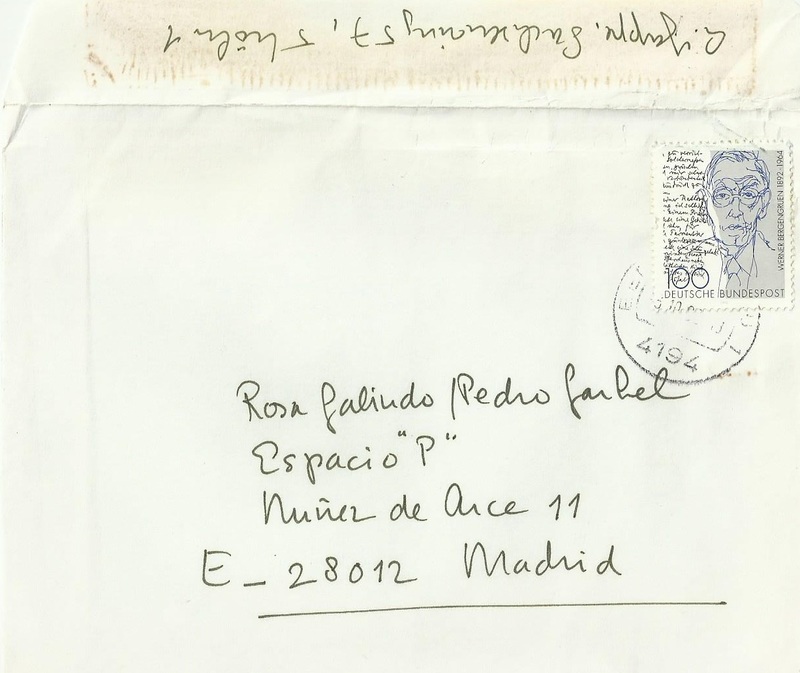 G. Jappe, Sachsenring 57, 5 Köln 1
WERNER BERGENGRUEN 1892-1964
100
DEUTSCHE BUNDESPOST
4194
1
Rosa Galindo / Pedro Garhel
Espacio "P"
Nuñez de Arce 11
E_28012 Madrid